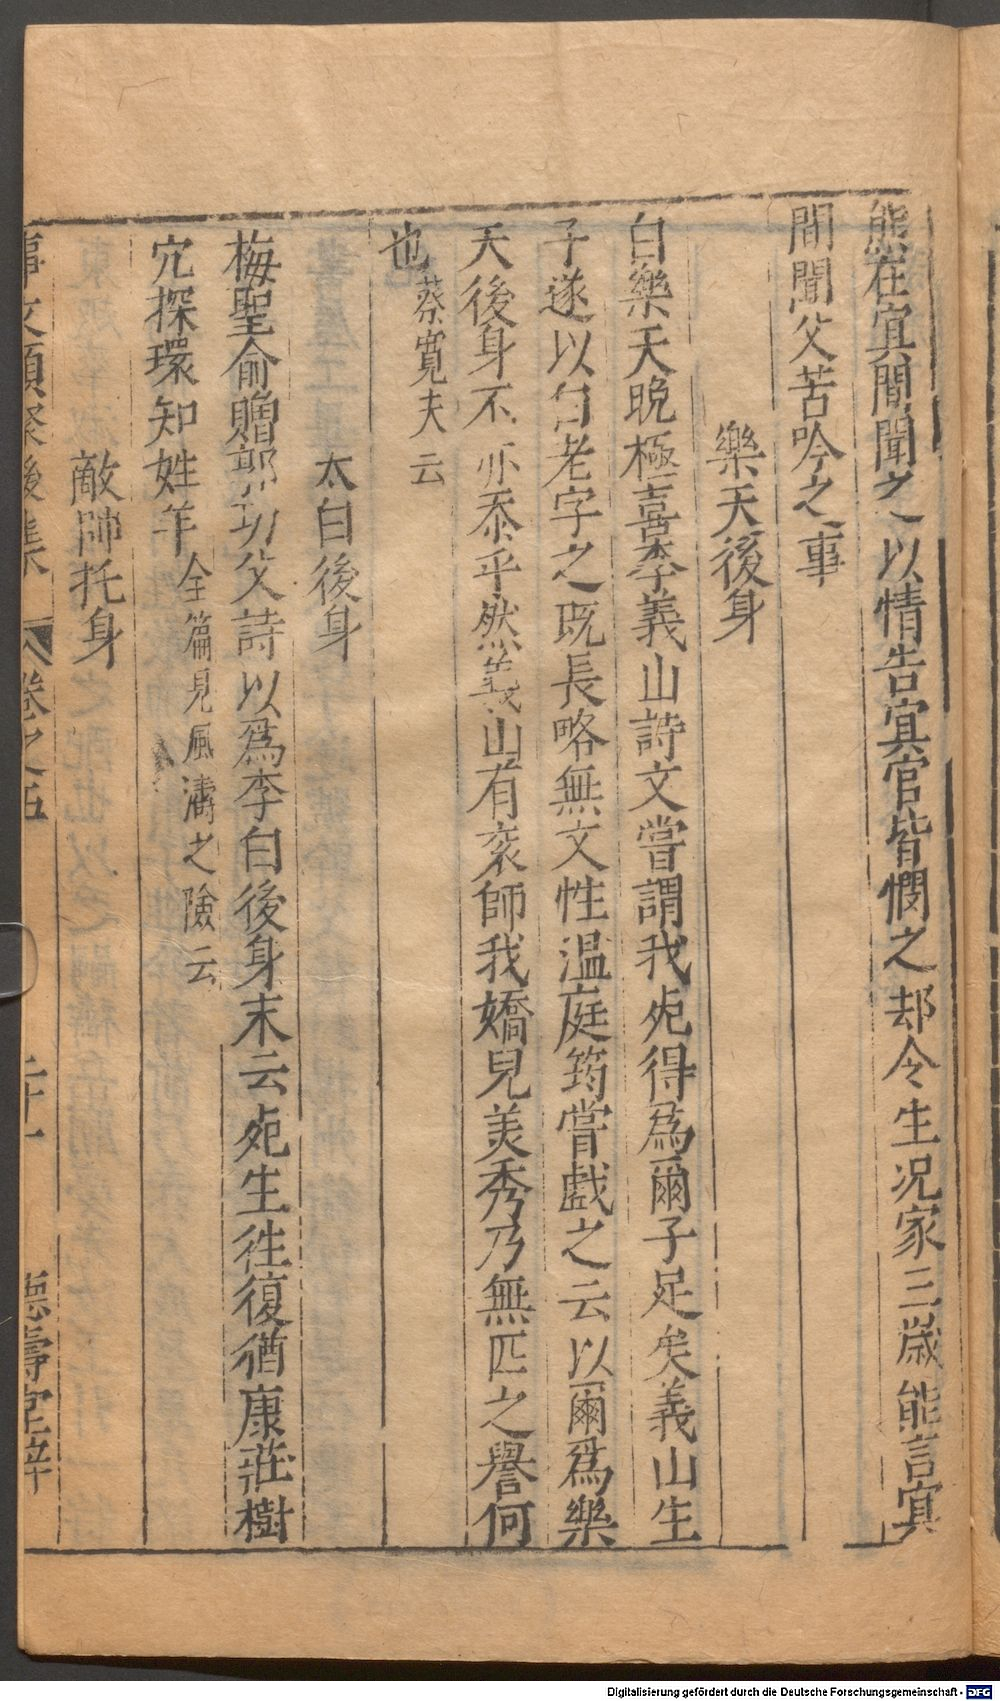 熊在㝠間聞之以情告㝠官皆憫之却令生况家三歲能言㝠
間聞父苦吟之事
樂天後身
白樂天晚極喜李義山詩文嘗謂我死得爲爾子足矣義山生
子遂以白老字之既長略無文性温庭筠嘗戲之云以爾爲樂
天後身不亦忝乎然義山有衮師我嬌兒美秀乃無匹之譽何
也蔡寬夫云
太白後身
梅聖俞贈郭功父詩以爲李白後身末云死生徃復猶康莊樹
穴探環知姓羊全篇見風濤之險云
敵帥托身
事文類聚後集 卷之五 二十一 德壽堂梓
Digitalisierung gefördert durch die Deutsche Forschungsgemeinschaft - DFG